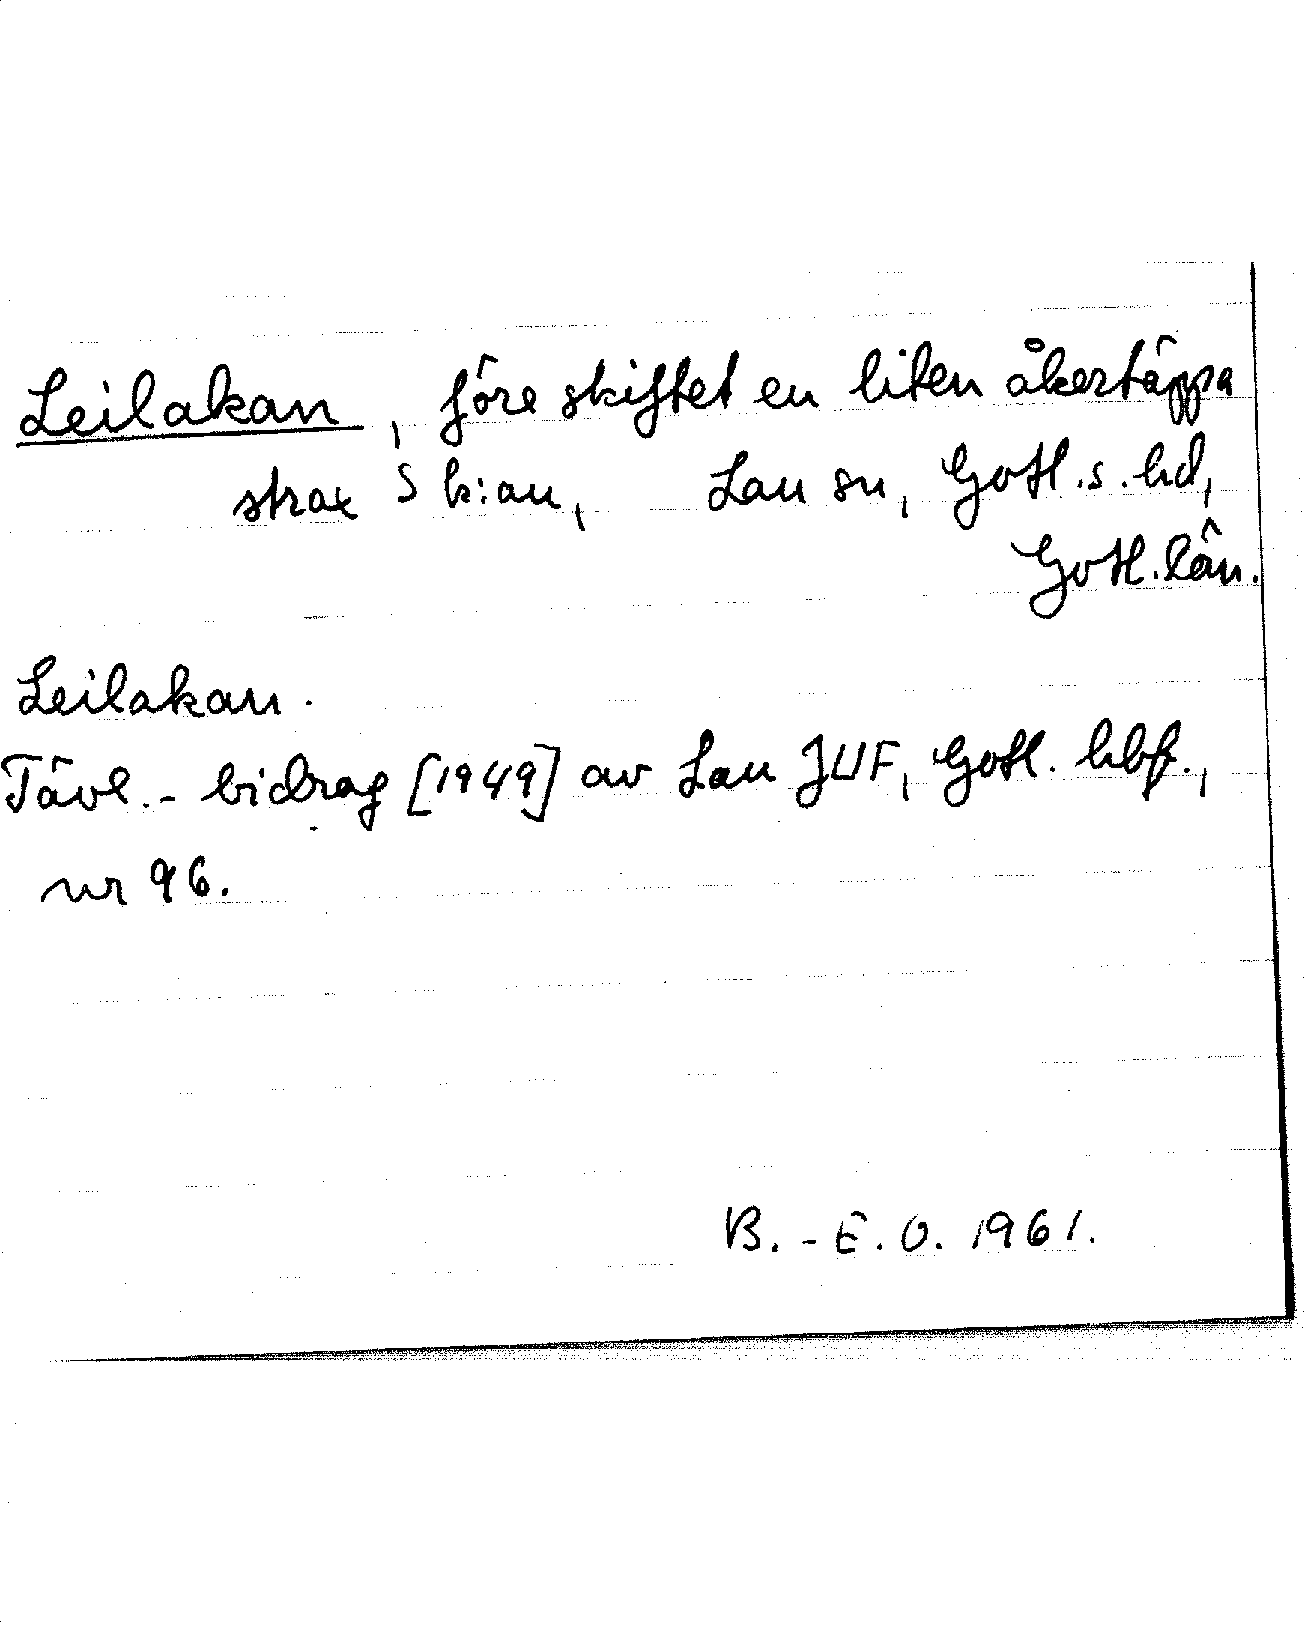 Leilakan, före skiftet en liten åkertäppa
strax S k:an, Lau sn, Gotl.s.hd,
Gotl.län.
Leilakan.
Tävl.-bidrag [1949] av Lau JUF, Gotl. hbf.,
nr 96.
B.-E.O. 1961.